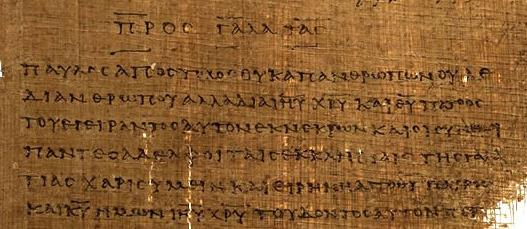 ΠΡΟϹ ΓΑΛΑΤΑϹ
ΠΑΥΛΟϹ ΑΠΟϹΤΟΛΟϹ ΟΥΚ ΑΠ ΑΝΘΡΩΠΩΝ ΟΥΔΕ
ΔΙ ΑΝΘΡΩΠΟΥ ΑΛΛΑ ΔΙΑ ΙΗΥ ΧΡΥ ΚΑΙ ΘΥ ΠΑΤΡΟϹ
ΤΟΥ ΕΓΕΙΡΑΝΤΟϹ ΑΥΤΟΝ ΕΚ ΝΕΚΡΩΝ ΚΑΙ ΟΙ ϹΥΝ
ΠΑΝΤΕϹ ΑΔΕΛΦΟΙ ΤΑΙϹ ΕΚΚΛΗϹΙΑΙϹ ΤΗϹ ΓΑΛΑ
ΤΙΑϹ ΧΑΡΙϹ ΥΜΕΙΝ ΚΑΙ ΕΙΡΗΝΗ ΑΠΟ
ΚΑΙ ΚΥ ΗΜΩΝ ΙΗΥ ΧΡΥ ΤΟΥ ΔΟΝΤΟϹ ΑΥΤΟΝ